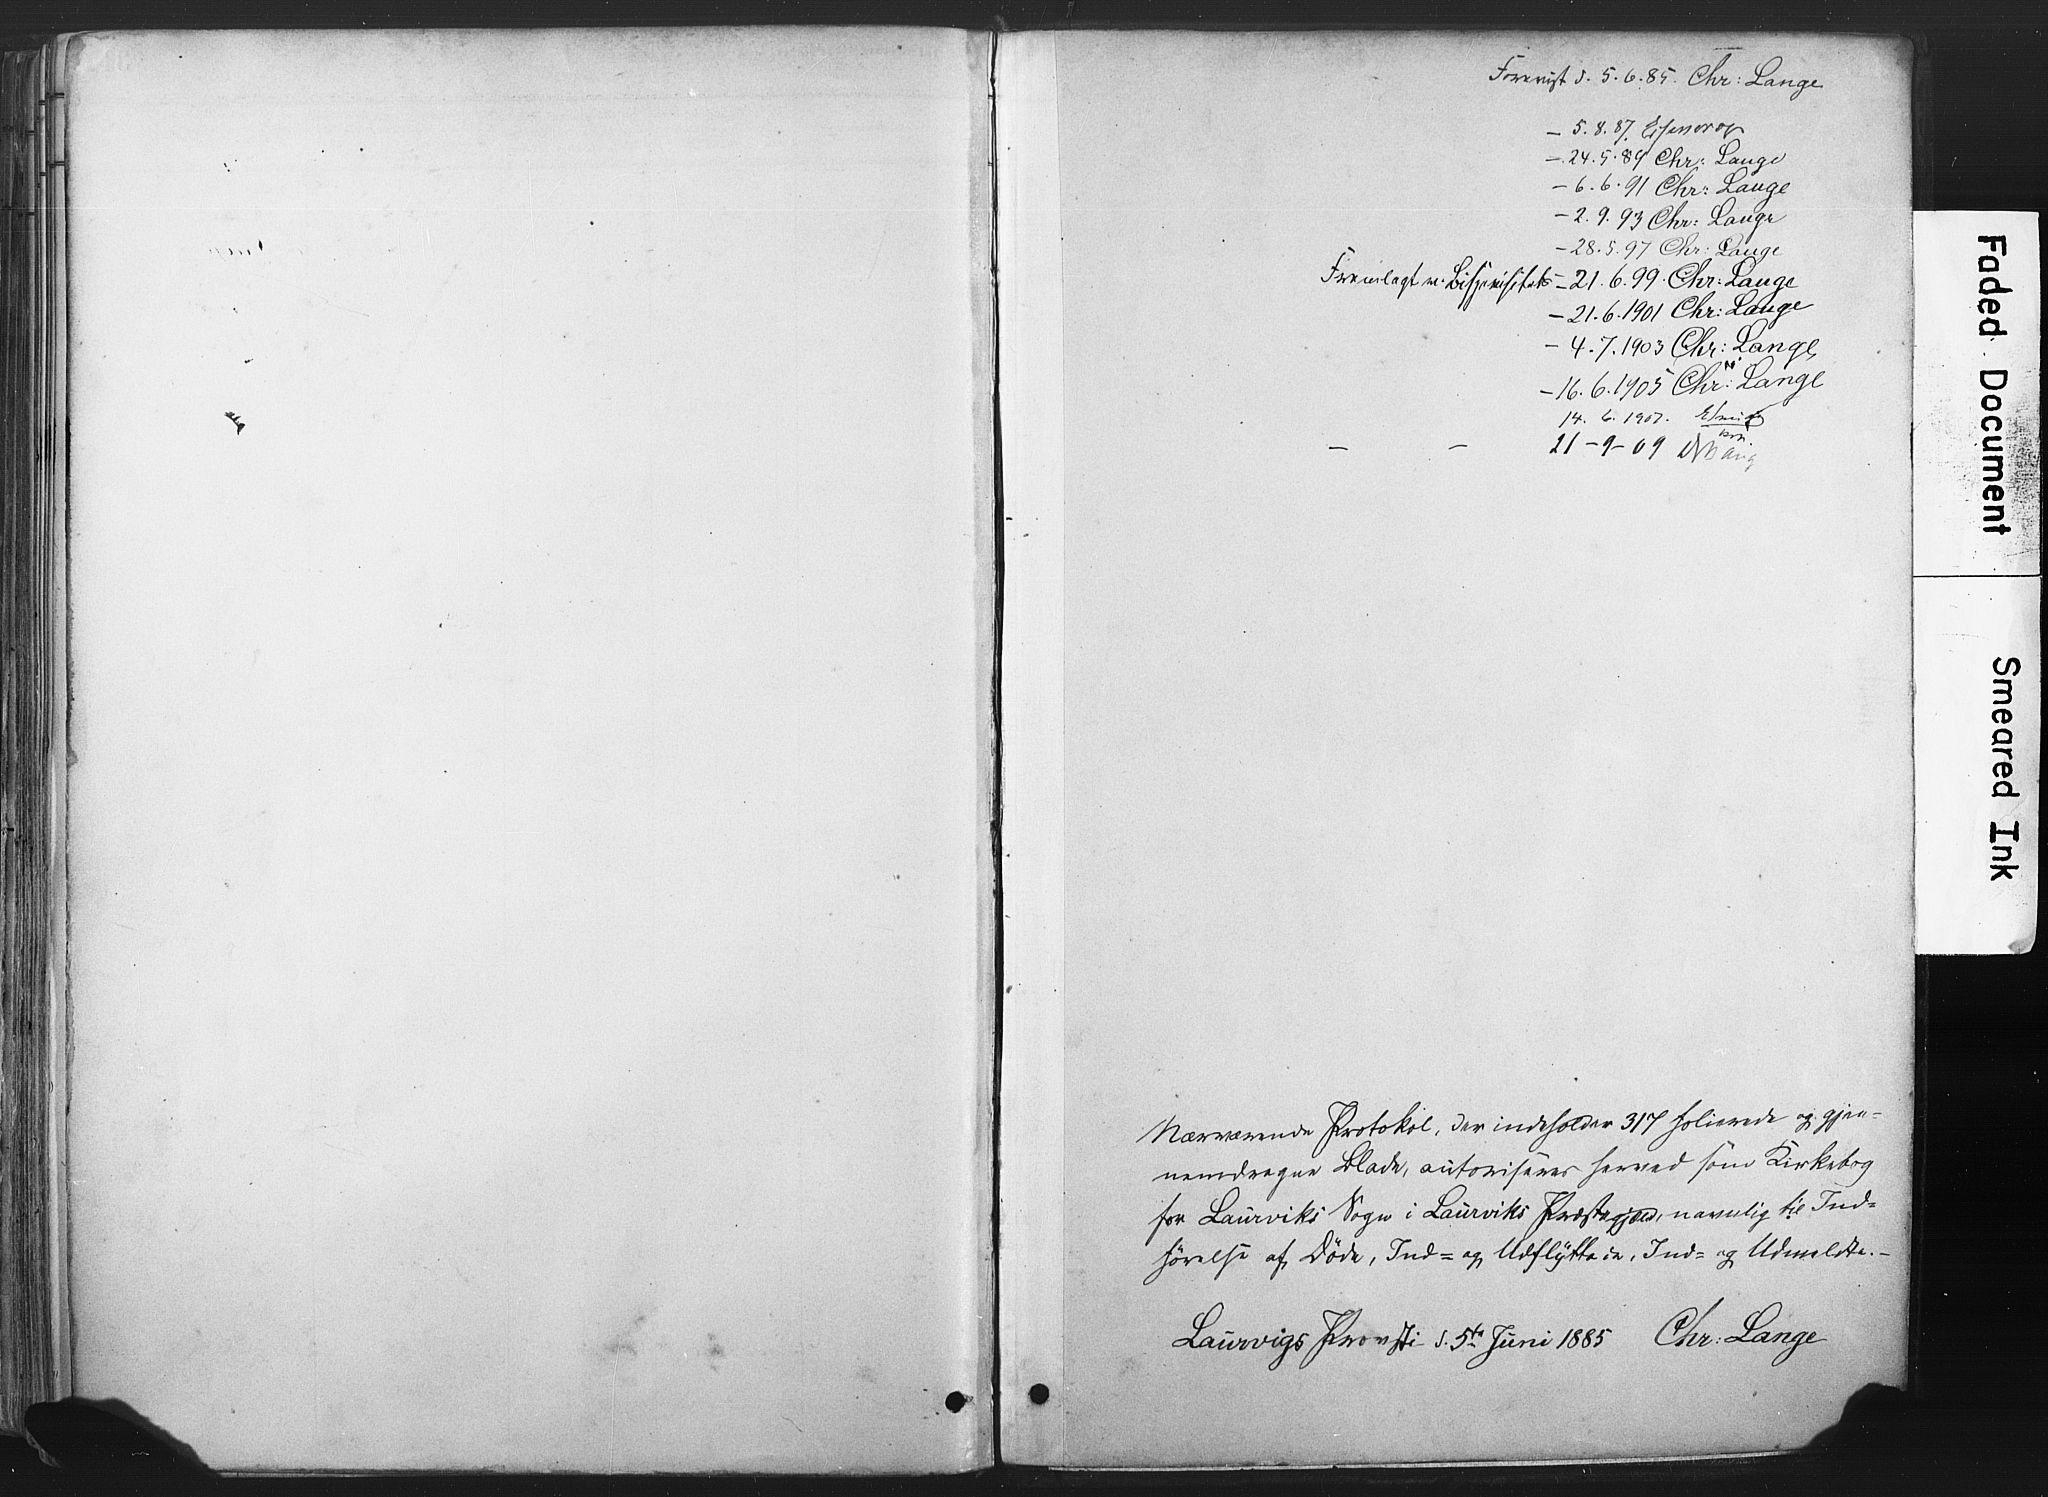 Forevist d. 5.6.85. Chr: Lange
– 5.8.87.
– 24.5.89 Chr: Lange
– 6.6.91 Chr: Lange
– 2.9.93 Chr: Lange
– 28.5.97 Chr: Lange
Fremlagt v. Bispevisitats – 21.6.99. Chr: Lange
– 21.6.1901 Chr: Lange
– 4.7.1903 Chr: Lange
– 16.6.1905 Chr: Lange
14. 6. 1907.
– – 21-9-09
Nærværende Protokol, der indeholder 317 folierede og gjen=
nemdragne Blade, autoriseres herved som Kirkebog
for Laurviks Sogn i Laurviks Præstegjæld, navnlig til Ind=
førelse af Døde, Ind= og Udflyttede, Ind= og Udmeldte. –
Laurvigs Provsti d. 5te Juni 1885 Chr: Lange
Faded Document
Smeared Ink